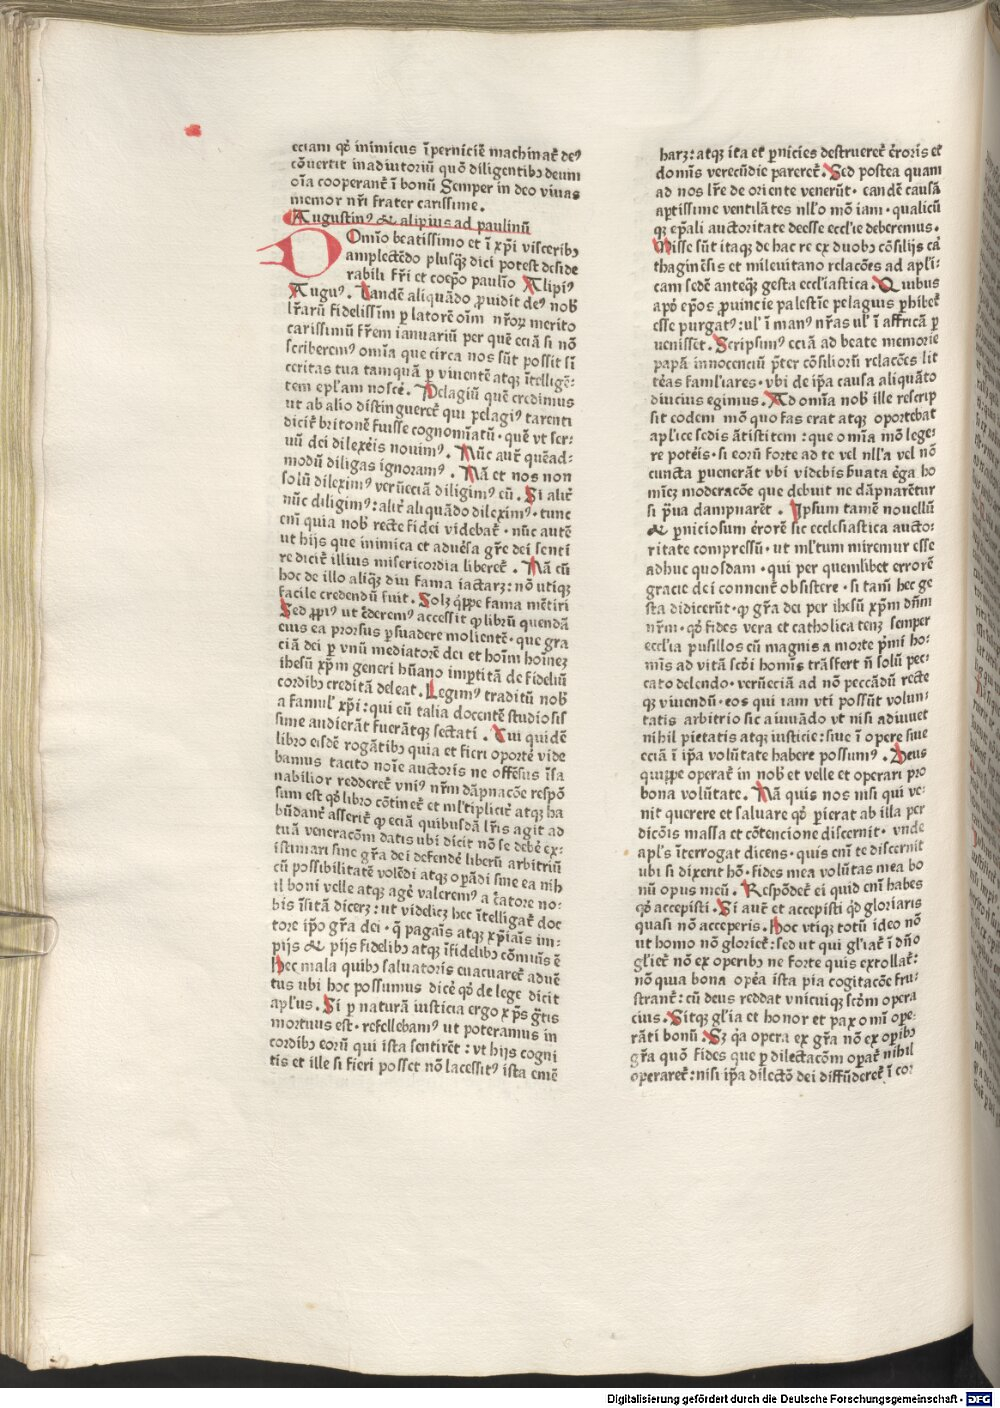 eciam qḋ inimicus ī perniciē machinat̃ deꝰ
cōuertit in adiutoriū quō diligentibꝫ deum
oīa cooperant̃ ī bonū Semper in deo viuas
memor nr̄i frater carissime.
Augustinꝰ & alipius ad paulinū
Domīo beatissimo et ī xp̄i visceribꝫ
amplectēdo plusqꝫ dici potest deside
rabili fr̄i et coep̄o paulīo Alipiꝰ
Auguꝰ. Tandē aliquādo ꝓuidit deꝰ nob̄
lr̄arū fidelissim ꝑ latorē oīm nr̄oꝝ merito
carissimū fr̄em ianuariū per quē eciā si nō
scriberemꝰ omīa que circa nos sūt possit sī
ceritas tua tamquā ꝑ viuentē atqꝫ ītelligē-
tem epl̄am noscē. Pelagiū quē credimus
ut ab alio distinguereť qui pelagiꝰ tarenti
diciť britonē fuisse cognomīatū · quē vt ser-
uū dei dilexēis nouimꝰ. Nūc auť quēad-
modū diligas ignoramꝰ. Nā et nos non
solū dileximꝰ verūeciā diligimꝰ eū. Si aliť
nūc diligimꝰ: aliť aliquādo dileximꝰ · tunc
em̄ quia nob̄ recte fidei videbať · nūc autē
ut hijs que inimica et aduēsa gr̄e dei senti
re diciť illius misericordia libereť. Nā cū
hoc de illo aliqꝫ diu fama iactarꝫ: nō utiqꝫ
facile credendū fuit. Solꝫ q̄ppe fama mētiri
Sed ꝓpiꝰ ut c̄deremꝰ accessit ꝙ librū quendā
eius ea prorsus ꝑsuadere molientē · que gra
ciā dei ꝑ vnū mediatorē dei et hoīm hoīneꝫ
ihesū xp̄m generi hūano imꝑtitā de fideliū
cordibꝫ creditā deleat. Legimꝰ traditū nob̄
a famul̄ xp̄i: qui eū talia docentē studiosis
sime audierāt fuerātqꝫ sectati. Cui quidē
libro eisdē rogātibꝫ quia et fieri oportē vide
bamus tacito noīe auctoris ne offēsus īsa
nabilior reddereť vniꝰ nr̄m dāpnacōe respō
sum est qḋ libro cōtineť et ml̄tipliciť atqꝫ ha
būdanť asseriť ꝙ eciā quibusdā lr̄is agit ad
tuā veneracōm datis ubi dicit nō se debē ex-
istimari sine gr̄a dei defendē liberū arbitriū
cū possibilitatē volēdi atqꝫ opādi sine ea nih
il boni velle atqꝫ agē valeremꝰ a c̄atore no-
bis īsitā dicerꝫ: ut videlicꝫ hec ītelligať doc
tore ip̄o gr̄a dei · q̄ pagaīs atqꝫ xp̄iaīs im-
pijs & pijs fidelibꝫ atqꝫ īfidelibꝫ cōmuīs ē
Hec mala quibꝫ saluatoris euacuareť aduē
tus ubi hoc possumus dicē qḋ de lege dicit
apl̄us. Si ꝑ naturā iusticia ergo xp̄s gr̄tis
mortuus est · refellebamꝰ ut poteramus in
cordibꝫ eorū qui ista sentirēt: vt hijs cogni
tis et ille si fieri posset nō lacessitꝰ ista emē
harꝫ: atqꝫ ita et ꝑnicies destruereť ēroris et
doloris verecūdie parcereť. Sed postea quam
ad nos lr̄e de oriente venerūt · eandē causā
aptissime ventilātes nll̄o mō iam · qualicū
qꝫ ep̄ali auctoritate deesse eccl̄ie deberemus.
Misse sūt itaqꝫ de hac re ex duobꝫ cōsilijs car
thaginēsis et mileuitano relacōes ad apl̄i-
cam sedē anteqꝫ gesta eccl̄iastica. Quibus
apḋ ep̄os ꝓuincie palestīe pelagius ꝑhibeť
esse purgatꝰ: ul̄ ī manꝰ nr̄as ul̄ ī affricā ꝑ
uenisset. Scripsimꝰ eciā ad beate memorie
papā innocenciū p̄ter cōsiliorū relacōes lit
tēas famil̄iares · vbi de ip̄a causa aliquāto
diucius egimus. Ad omīa nob̄ ille rescrip
sit eodem mō quo fas erat atqꝫ oportebat
apl̄ice sedis ātistitem: que omīa mō lege-
re potēis · si eorū forte ad te vel nll̄a vel nō
cuncta ꝑuenerāt vbi videbis ẜuata ēga ho
mīeꝫ moderacōe que debuit ne dāpnarētur
si p̄ua dampnarēt. Ipsum tamē nouellū
& ꝑniciosum ērorē sic ecclesiastica aucto-
ritate compressū · ut ml̄tum miremur esse
adhuc quosdam · qui per quemlibet errorē
gracie dei connenť obsistere · si tam̄ hec ge
sta didicerūt · ꝙ gr̄a dei per ihesū xp̄m dn̄m
nr̄m · qḋ fides vera et catholica tenꝫ semper
eccl̄ia pusillos cū magnis a morte p̄mi ho-
mīs ad vitā scḋi homīs trāsfert n̄ solū pec
cato delendo · verūeciā ad nō peccādū recte
qꝫ viuendū · eos qui iam vti possūt volun-
tatis arbitrio sic aiuuādo vt nisi adiuuet
nihil pietatis atqꝫ iusticie: siue ī opere siue
eciā ī ip̄a volūtate habere possumꝰ. Deus
quippe operať in nob̄ et velle et operari pro
bona volūtate. Nā quis nos nisi qui ve-
nit querere et saluare qḋ ꝑierat ab illa per
dicōis massa et cōtencione discernit · vnde
apl̄s īterrogat dicens · quis em̄ te discernit
ubi si dixerit hō · fides mea volūtas mea bo
nū opus meū. Respōdeť ei quid em̄ habes
qḋ accepisti. Si auť et accepisti qḋ gloriaris
quasi nō acceperis. Hoc vtiqꝫ totū ideo nō
ut homo nō glorieť: sed ut qui gl̄iať ī dn̄o
gl̄ieť nō ex operibꝫ ne forte quis extollať:
nō quia bona opēa ista pia cogitacōe fru-
stranť: cū deus reddat vnicuiqꝫ scḋm opera
eius. Sitqꝫ gl̄ia et honor et pax omī ope-
rāti bonū. Sꝫ q̄a opera ex gr̄a nō ex oꝑibꝫ
gr̄a quō fides que ꝑ dilectacōm oꝑať nihil
operareť: nisi ip̄a dilectō dei diffūdereť ī cor
Digitalisierung gefördert durch die Deutsche Forschungsgemeinschaft - DFG